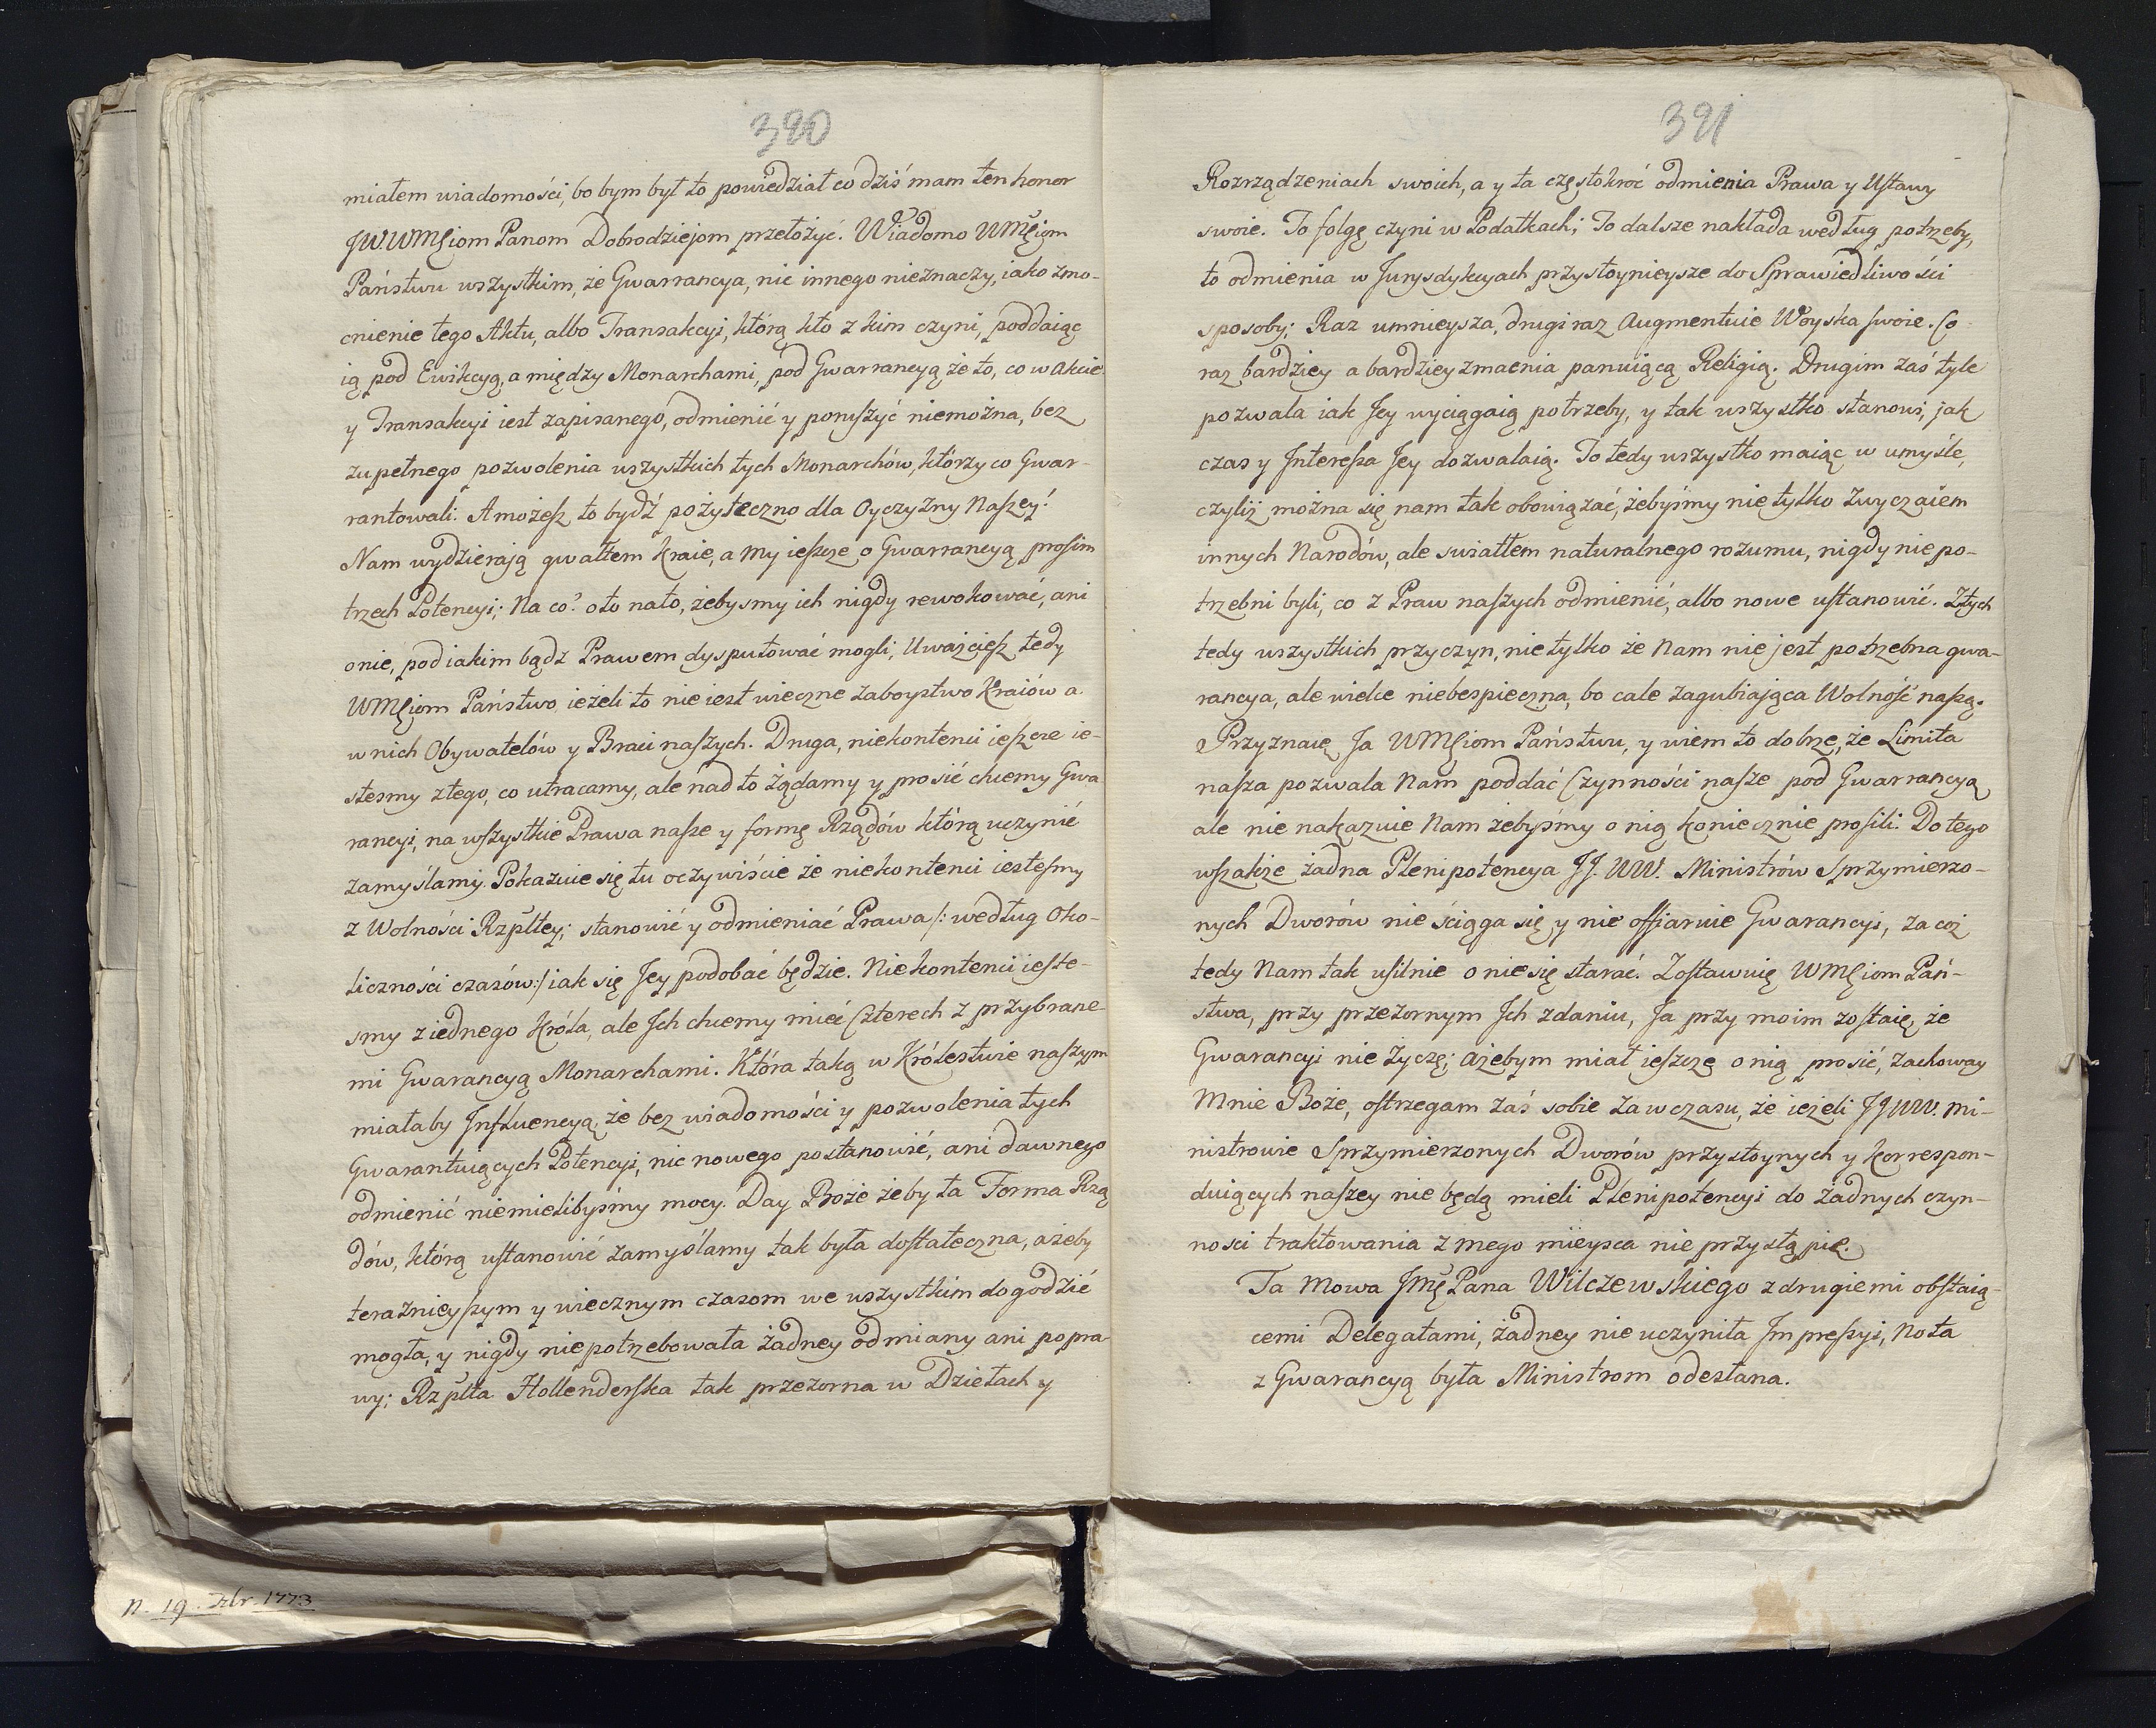 390
miałem wiadomości, bo bym był to powiedział co dziś mam ten honor
JWWMciom Panom Dobrodziejom przełożyć. Wiadomo WMciom
Państwu wszystkim, że Gwarrancya, nic innego nieznaczy, iako zmo-
cnienie tego Aktu, albo Transakcyi, którą kto z kim czyni, poddaiąc
ią pod Ewikcyą, a między Monarchami, pod Gwarrancyą że to, co w akcie
y Transakcyi iest zapisanego, odmienić y poruszyć niemożna, bez
zupełnego pozwolenia wszystkich tych Monarchów, którzy co Gwar-
rantowali. A możesz to bydź pożyteczno dla Oyczyzny Naszey!
Nam wydzierają gwałtem Kraie, a my ieszcze o Gwarrancyą prosim
trzech Potencyi; Na co? oto nato, żebysmy ich nigdy rewokować, ani
onie, pod iakim bądz Prawem dysputować mogli, Uważciesz tedy
WMciom Państwo, ieżeli to nie iest wieczne zaboystwo Kraiów a
w nich Obywatelów y Braci naszych. Druga, niekontenci ieszcze ie-
stesmy z tego, co utracamy, ale nad to żądamy y prosić chcemy Gwa
rancyi, na wszystkie Prawa nasze y formę Rządów którą uczynić
zamyślamy. Pokazuie się tu oczywiście że niekontenci iestesmy
z Wolności Rzpltey; stanowić y odmieniać Prawa /: według oko-
liczności czasów:/ iak się Jey podobać będzie. Niekontenci ieste-
smy z iednego Króla, ale Jch chcemy mieć Czterech z przybrane-
mi Gwarancyą Monarchami. Która taką w Królestwie naszym
miałaby Jnfluencyą, że bez wiadomości y pozwolenia tych
Gwarantuiących Potencyi, nic nowego postanowić, ani dawnego
odmienić niemielibyśmy mocy. Day Boże żeby ta Forma Rzą
dów, którą ustanowić zamyślamy tak była dostateczna, ażeby
teraznieyszym y wiecznym czasom we wszystkim dogodzić
mogła, y nigdy niepotrzebowała żadney odmiany ani popra-
wy; Rzplta Hollenderska tak przezorna w Dziełach y
n. 19. Xbr. 1773
391
Rozrządzeniach swoich, a y ta częstokroć odmienia Prawa y Ustawy
swoie. To folgę czyni w Podatkach; To dalsze nakłada według potrzeby,
to odmienia w Jurysdykcyach przystoynieysze do Sprawiedliwości
sposoby; Raz umnieysza, drugi raz Augmentuie Woyska swoie. Co
raz bardziey a bardziey zmacnia panuiącą Religią. Drugim zaś tyle
pozwala iak Jey wyciągaią potrzeby, y tak wszystko stanowi, jak
czas y Jnteressa Jey dozwalaią. To tedy wszystko maiąc w umyśle,
czyliż można się nam tak obowiązać, żebyśmy nie tylko zwyczaiem
innych Narodów, ale swiatłem naturalnego rozumu, nigdy niepo-
trzebni byli, co z Praw naszych odmienić, albo nowe ustanowić. Ztych
tedy wszystkich przyczyn, nie tylko że Nam nie jest potrzebna gwa-
rancya, ale wielce niebespieczna, bo cale zagubiająca Wolność naszą.
Przyznaię Ja WMciom Państwu, y wiem to dobrze, że Limita
nasza pozwala Nam poddać Czynności nasze pod Gwarrancyą
ale nie nakazuie Nam żebyśmy o nią koniecznie prosili. Do tego
wszakże żadna Plenipotencya JJ. WW. Ministrów Sprzymierzo-
nych Dworów nie ściąga się, y nie offiaruie Gwarancyi, za coż
tedy Nam tak usilnie o nie się starać. Zostawuię WMciom Pań-
stwa, przy przezornym Jch zdaniu, Ja przy moim zostaię, że
Gwarancyi nie życzę; ażebym miał ieszczę o nią prosić, zachoway
Mnie Boże, ostrzegam zaś sobie za wczasu, że ieżeli JJWW. mi-
nistrowie Sprzymierzonych Dworów przystoynych y korrespon-
duiących naszey nie będą mieli Plenipotencyi do żadnych czyn-
nosci traktowania z mego mieysca nie przystąpię.
Ta Mowa Jmę Pana Wilczewskiego z drugiemi obstaią-
cemi Delegatami, żadney nie uczyniła Jmpressyi, Nota
z Gwarancyą była Ministrom odesłana.